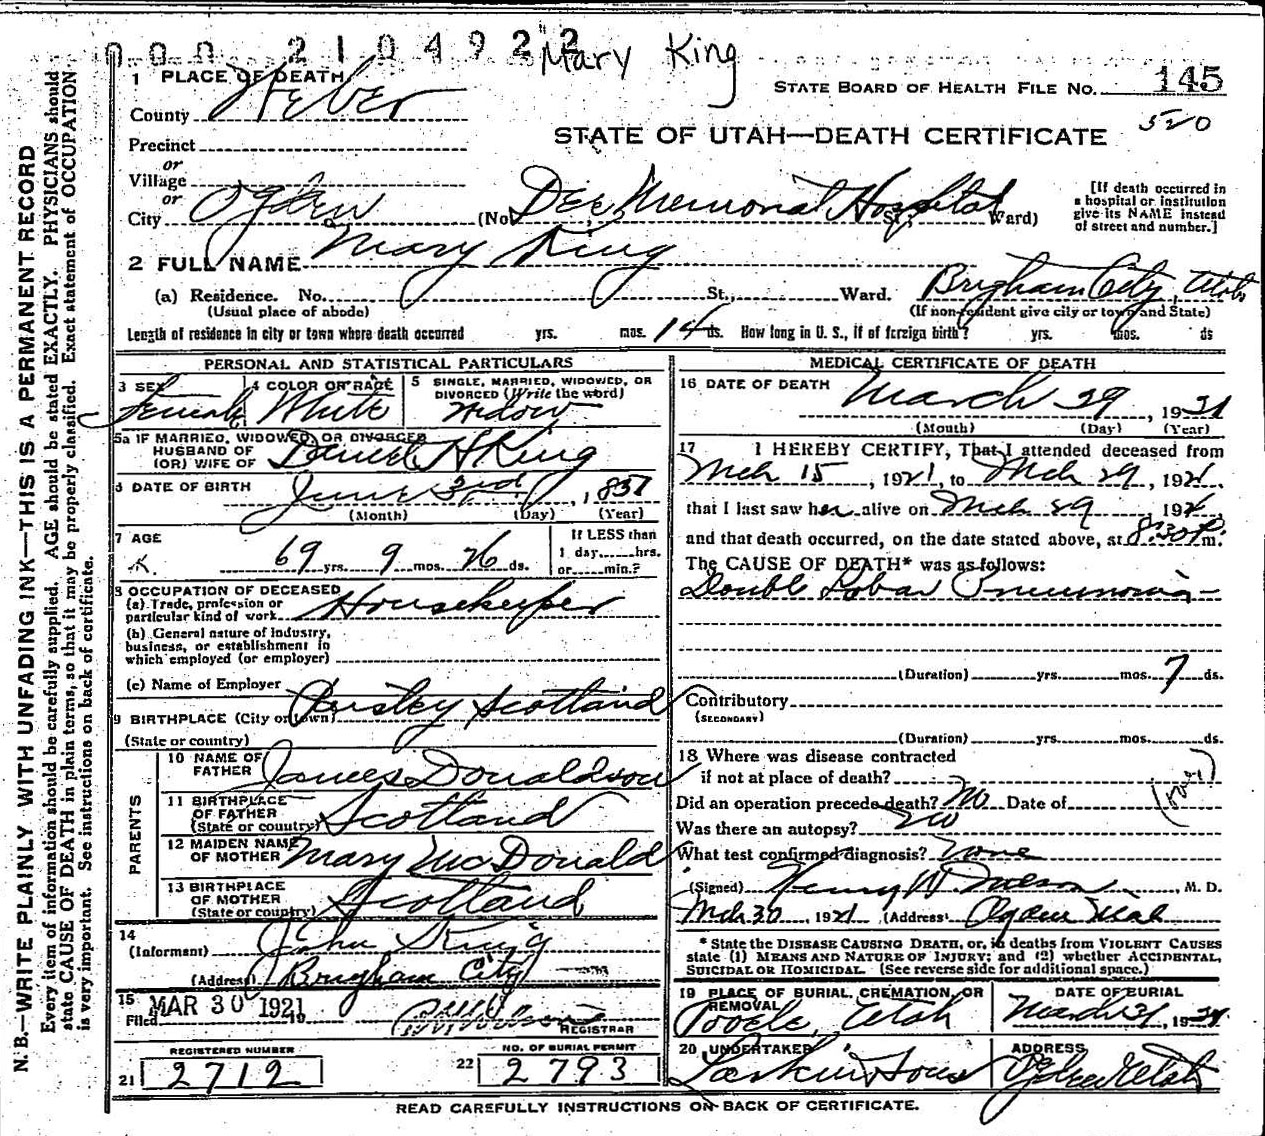 000 2104922 Mary King
1 PLACE OF DEATH
County Weber
STATE BOARD OF HEALTH FILE NO. 145
520
STATE OF UTAH—DEATH CERTIFICATE
Precinct
or
Village
or
City Ogden (No. Dee Memorial Hospital St., Ward)
[If death occurred in a hospital or institution give its NAME instead of street and number.]
2 FULL NAME Mary King
(a) Residence. No. St., Ward. Brigham City, Utah
(Usual place of abode) (If non-resident give city or town and State)
Length of residence in city or town where death occurred yrs. mos. 14 ds. How long in U. S., if of foreign birth? yrs. mos. ds
PERSONAL AND STATISTICAL PARTICULARS
3 SEX Female
4 COLOR OR RACE White
5 SINGLE, MARRIED, WIDOWED, OR DIVORCED (Write the word) Widow
5a IF MARRIED, WIDOWED, OR DIVORCED
HUSBAND OF
(OR) WIFE OF Daniel H King
6 DATE OF BIRTH June 3rd, 1851
(Month) (Day) (Year)
7 AGE
69 yrs. 9 mos. 26 ds.
If LESS than
1 day......hrs.
or......min.?
8 OCCUPATION OF DECEASED
(a) Trade, profession or
particular kind of work Housekeeper
(b) General nature of Industry,
business, or establishment in
which employed (or employer)
(c) Name of Employer
9 BIRTHPLACE (City or town) Scotland
(State or country)
PARENTS
10 NAME OF FATHER James Donaldson
11 BIRTHPLACE OF FATHER (State or country) Scotland
12 MAIDEN NAME OF MOTHER Mary McDonald
13 BIRTHPLACE OF MOTHER (State or country) Scotland
14
(Informant) John King
(Address) Brigham City
15
Filed MAR 30 1921 19
REGISTRAR
REGISTERED NUMBER
21 2712
NO. OF BURIAL PERMIT
22 2793
MEDICAL CERTIFICATE OF DEATH
16 DATE OF DEATH
March 29, 1921
(Month) (Day) (Year)
17 I HEREBY CERTIFY, That I attended deceased from
Mch 15, 1921, to Mch 29, 1921,
that I last saw her alive on Mch 29, 1921,
and that death occurred, on the date stated above, at 8:30P m.
The CAUSE OF DEATH* was as follows:
Double Lobar Pneumonia
(Duration) yrs. mos. 7 ds.
Contributory
(SECONDARY)
(Duration) yrs. mos. ds.
18 Where was disease contracted
if not at place of death?
Did an operation precede death? No Date of
Was there an autopsy? No
What test confirmed diagnosis? None
(Signed) Henry W. Nelson, M. D.
Mch 30, 1921 (Address) Ogden Utah
* State the DISEASE CAUSING DEATH, or, in deaths from VIOLENT CAUSES
state (1) MEANS AND NATURE OF INJURY; and (2) whether ACCIDENTAL,
SUICIDAL OR HOMICIDAL. (See reverse side for additional space.)
19 PLACE OF BURIAL, CREMATION, OR REMOVAL
Tooele, Utah
DATE OF BURIAL
March 31, 1921
20 UNDERTAKER
Larkin & Sons
ADDRESS
Ogden Utah
READ CAREFULLY INSTRUCTIONS ON BACK OF CERTIFICATE.
N. B.—WRITE PLAINLY WITH UNFADING INK—THIS IS A PERMANENT RECORD
Every item of information should be carefully supplied. AGE should be stated EXACTLY. PHYSICIANS should
state CAUSE OF DEATH in plain terms, so that it may be properly classified. Exact statement of OCCUPATION
is very important. See instructions on back of certificate.